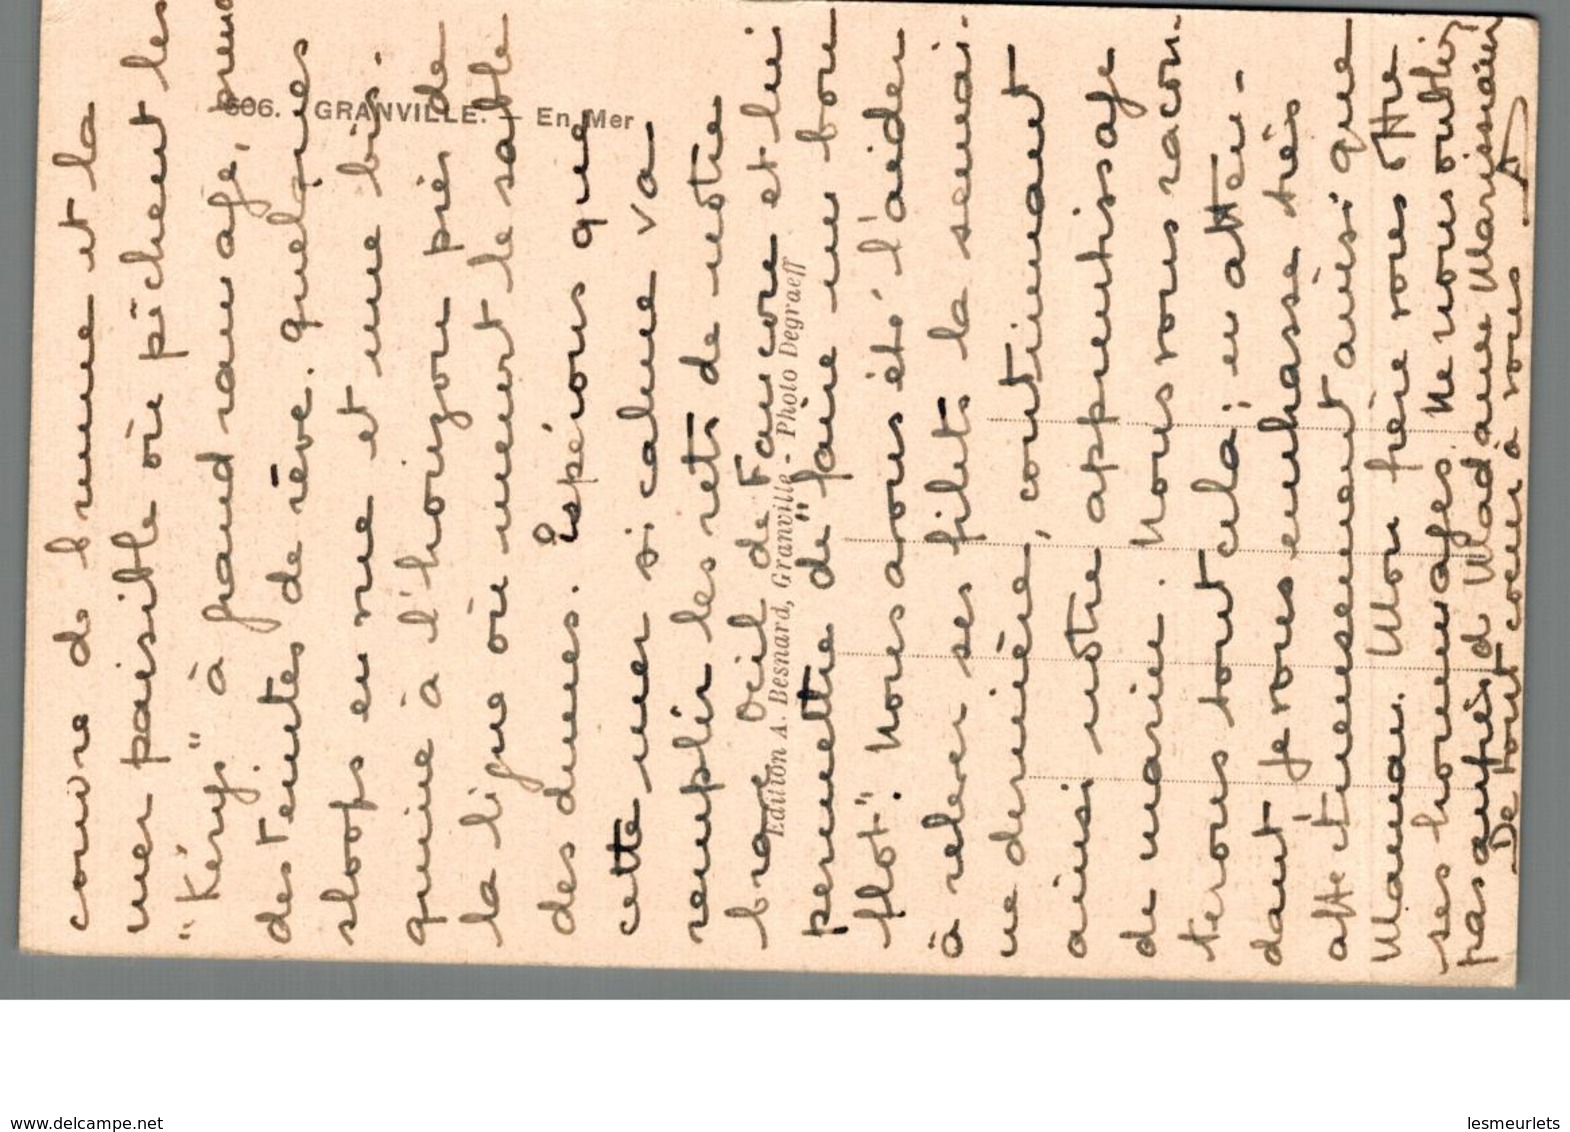 606. GRANVILLE. — En Mer
Edition A. Besnard, Granville - Photo Degraeff
couvre de brume et la
mer paisible où pêchent les
"Kérys" à grand rauage,
des Teutes de rêve. quelques
sloops en vue et une bis.
quine à l'houzon près de
la ligne où meurt le sable
des dunes. Espérons que
cette mer si calme va
remplir les rets de notre
brave Oeil de Faucon et lui
permettre de "faire un bon
flot". Nous avons été l'aider
à relever ses filets la semai-
ne dernière, continuant
ainsi notre apprentissage
de marin. Nous vous racon-
terons tout cela; en atten-
dant je vous embrasse très
affectueusement ainsi que
Maman. Mon frère vous offre
ses hommages. Ne nous oubliez
pas auprès d Madame
De tout coeur à vous
www.delcampe.net
lesmeurlets